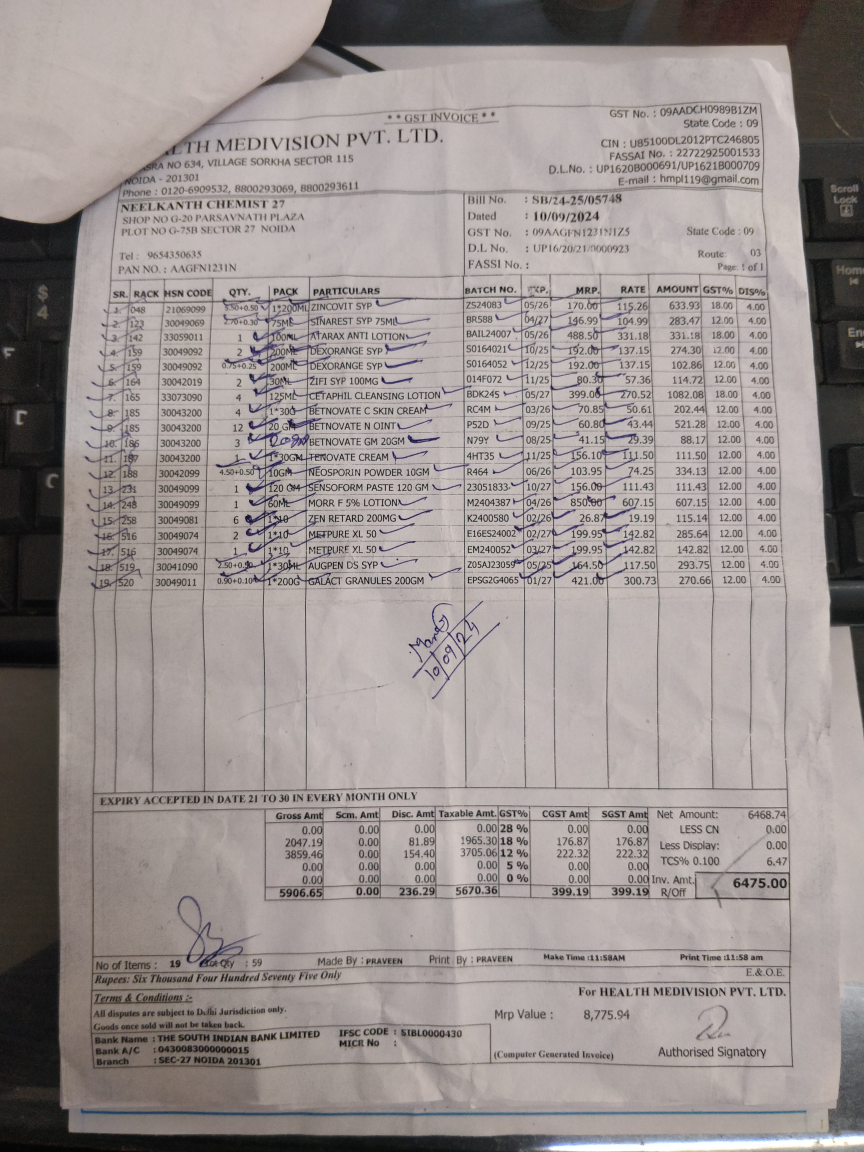 * * GST INVOICE * *
GST No. : 09AADCH0989B1ZM
State Code : 09
LTH MEDIVISION PVT. LTD.
CIN : U85100DL2012PTC246805
SRA NO 634, VILLAGE SORKHA SECTOR 115
FASSAI No. : 22722925001533
NOIDA - 201301
D.L.No. : UP1620B000691/UP1621B000709
Phone : 0120-6909532, 8800293069, 8800293611
E-mail : hmpl119@gmail.com
NEELKANTH CHEMIST 27
SHOP NO G-20 PARSAVNATH PLAZA
PLOT NO G-75B SECTOR 27 NOIDA
Tel : 9654350635
PAN NO. : AAGFN1231N
Bill No. : SB/24-25/05748
Dated : 10/09/2024
GST No. : 09AAGFN1231N1Z5 State Code : 09
D.L No. : UP16/20/21/0000923
Route: 03
FASSI No. :
Page: 1 of 1
SR. RACK HSN CODE QTY. PACK PARTICULARS BATCH NO. EXP. MRP. RATE AMOUNT GST% DIS%
1. 048 21069099 5.50+0.50 1*200ML ZINCOVIT SYP ZS24083 05/26 170.00 115.26 633.93 18.00 4.00
2. 123 30049069 2.70+0.30 75ML SINAREST SYP 75ML BR588 04/27 146.99 104.99 283.47 12.00 4.00
3. 142 33059011 1 100ML ATARAX ANTI LOTION BAIL24007 05/26 488.50 331.18 331.18 18.00 4.00
4. 159 30049092 2 200ML DEXORANGE SYP S0164021 10/25 192.00 137.15 274.30 12.00 4.00
5. 159 30049092 0.75+0.25 200ML DEXORANGE SYP S0164052 12/25 192.00 137.15 102.86 12.00 4.00
6. 164 30042019 2 30ML ZIFI SYP 100MG 014F072 11/25 80.30 57.36 114.72 12.00 4.00
7. 165 33073090 4 125ML CETAPHIL CLEANSING LOTION BDK245 05/27 399.00 270.52 1082.08 18.00 4.00
8. 185 30043200 4 1*30G BETNOVATE C SKIN CREAM RC4M 03/26 70.85 50.61 202.44 12.00 4.00
9. 185 30043200 12 20 GM BETNOVATE N OINT PS2D 09/25 60.80 43.44 521.28 12.00 4.00
10. 186 30043200 3 20gm BETNOVATE GM 20GM N79Y 08/25 41.15 29.39 88.17 12.00 4.00
11. 187 30043200 1 1*30GM TENOVATE CREAM 4HT35 11/25 156.10 111.50 111.50 12.00 4.00
12. 188 30042099 4.50+0.50 10GM NEOSPORIN POWDER 10GM R464 06/26 103.95 74.25 334.13 12.00 4.00
13. 231 30049099 1 120 GM SENSOFORM PASTE 120 GM 23051833 10/27 156.00 111.43 111.43 12.00 4.00
14. 248 30049099 1 60ML MORR F 5% LOTION M2404387 04/26 850.00 607.15 607.15 12.00 4.00
15. 258 30049081 6 1*10 ZEN RETARD 200MG K2400580 02/26 26.87 19.19 115.14 12.00 4.00
16. 516 30049074 2 1*10 METPURE XL 50 E16ES24002 02/27 199.95 142.82 285.64 12.00 4.00
17. 516 30049074 1 1*10 METPURE XL 50 EM240052 03/27 199.95 142.82 142.82 12.00 4.00
18. 519 30041090 2.50+0.50 1*30ML AUGPEN DS SYP Z05AJ23059 05/25 164.50 117.50 293.75 12.00 4.00
19. 520 30049011 0.90+0.10 1*200G GALACT GRANULES 200GM EPSG2G4065 01/27 421.00 300.73 270.66 12.00 4.00
10/09/24
EXPIRY ACCEPTED IN DATE 21 TO 30 IN EVERY MONTH ONLY
Gross Amt Scm. Amt Disc. Amt Taxable Amt. GST% CGST Amt SGST Amt
0.00 0.00 0.00 0.00 28 % 0.00 0.00
2047.19 0.00 81.89 1965.30 18 % 176.87 176.87
3859.46 0.00 154.40 3705.06 12 % 222.32 222.32
0.00 0.00 0.00 0.00 5 % 0.00 0.00
0.00 0.00 0.00 0.00 0 % 0.00 0.00
5906.65 0.00 236.29 5670.36 399.19 399.19
Net Amount: 6468.74
LESS CN 0.00
Less Display: 0.00
TCS% 0.100 6.47
Inv. Amt. 6475.00
R/Off
No of Items : 19 Tot Qty : 59 Made By : PRAVEEN Print By : PRAVEEN Make Time :11:58AM Print Time :11:58 am
Rupees: Six Thousand Four Hundred Seventy Five Only
E.& O.E.
Terms & Conditions :-
For HEALTH MEDIVISION PVT. LTD.
All disputes are subject to Delhi Jurisdiction only.
Mrp Value : 8,775.94
Goods once sold will not be taken back.
Bank Name : THE SOUTH INDIAN BANK LIMITED IFSC CODE : SIBL0000430
Bank A/C : 0430083000000015 MICR No :
Branch : SEC-27 NOIDA 201301
(Computer Generated Invoice)
Authorised Signatory
$
4
F
E
D
C
Scroll
Lock
Home